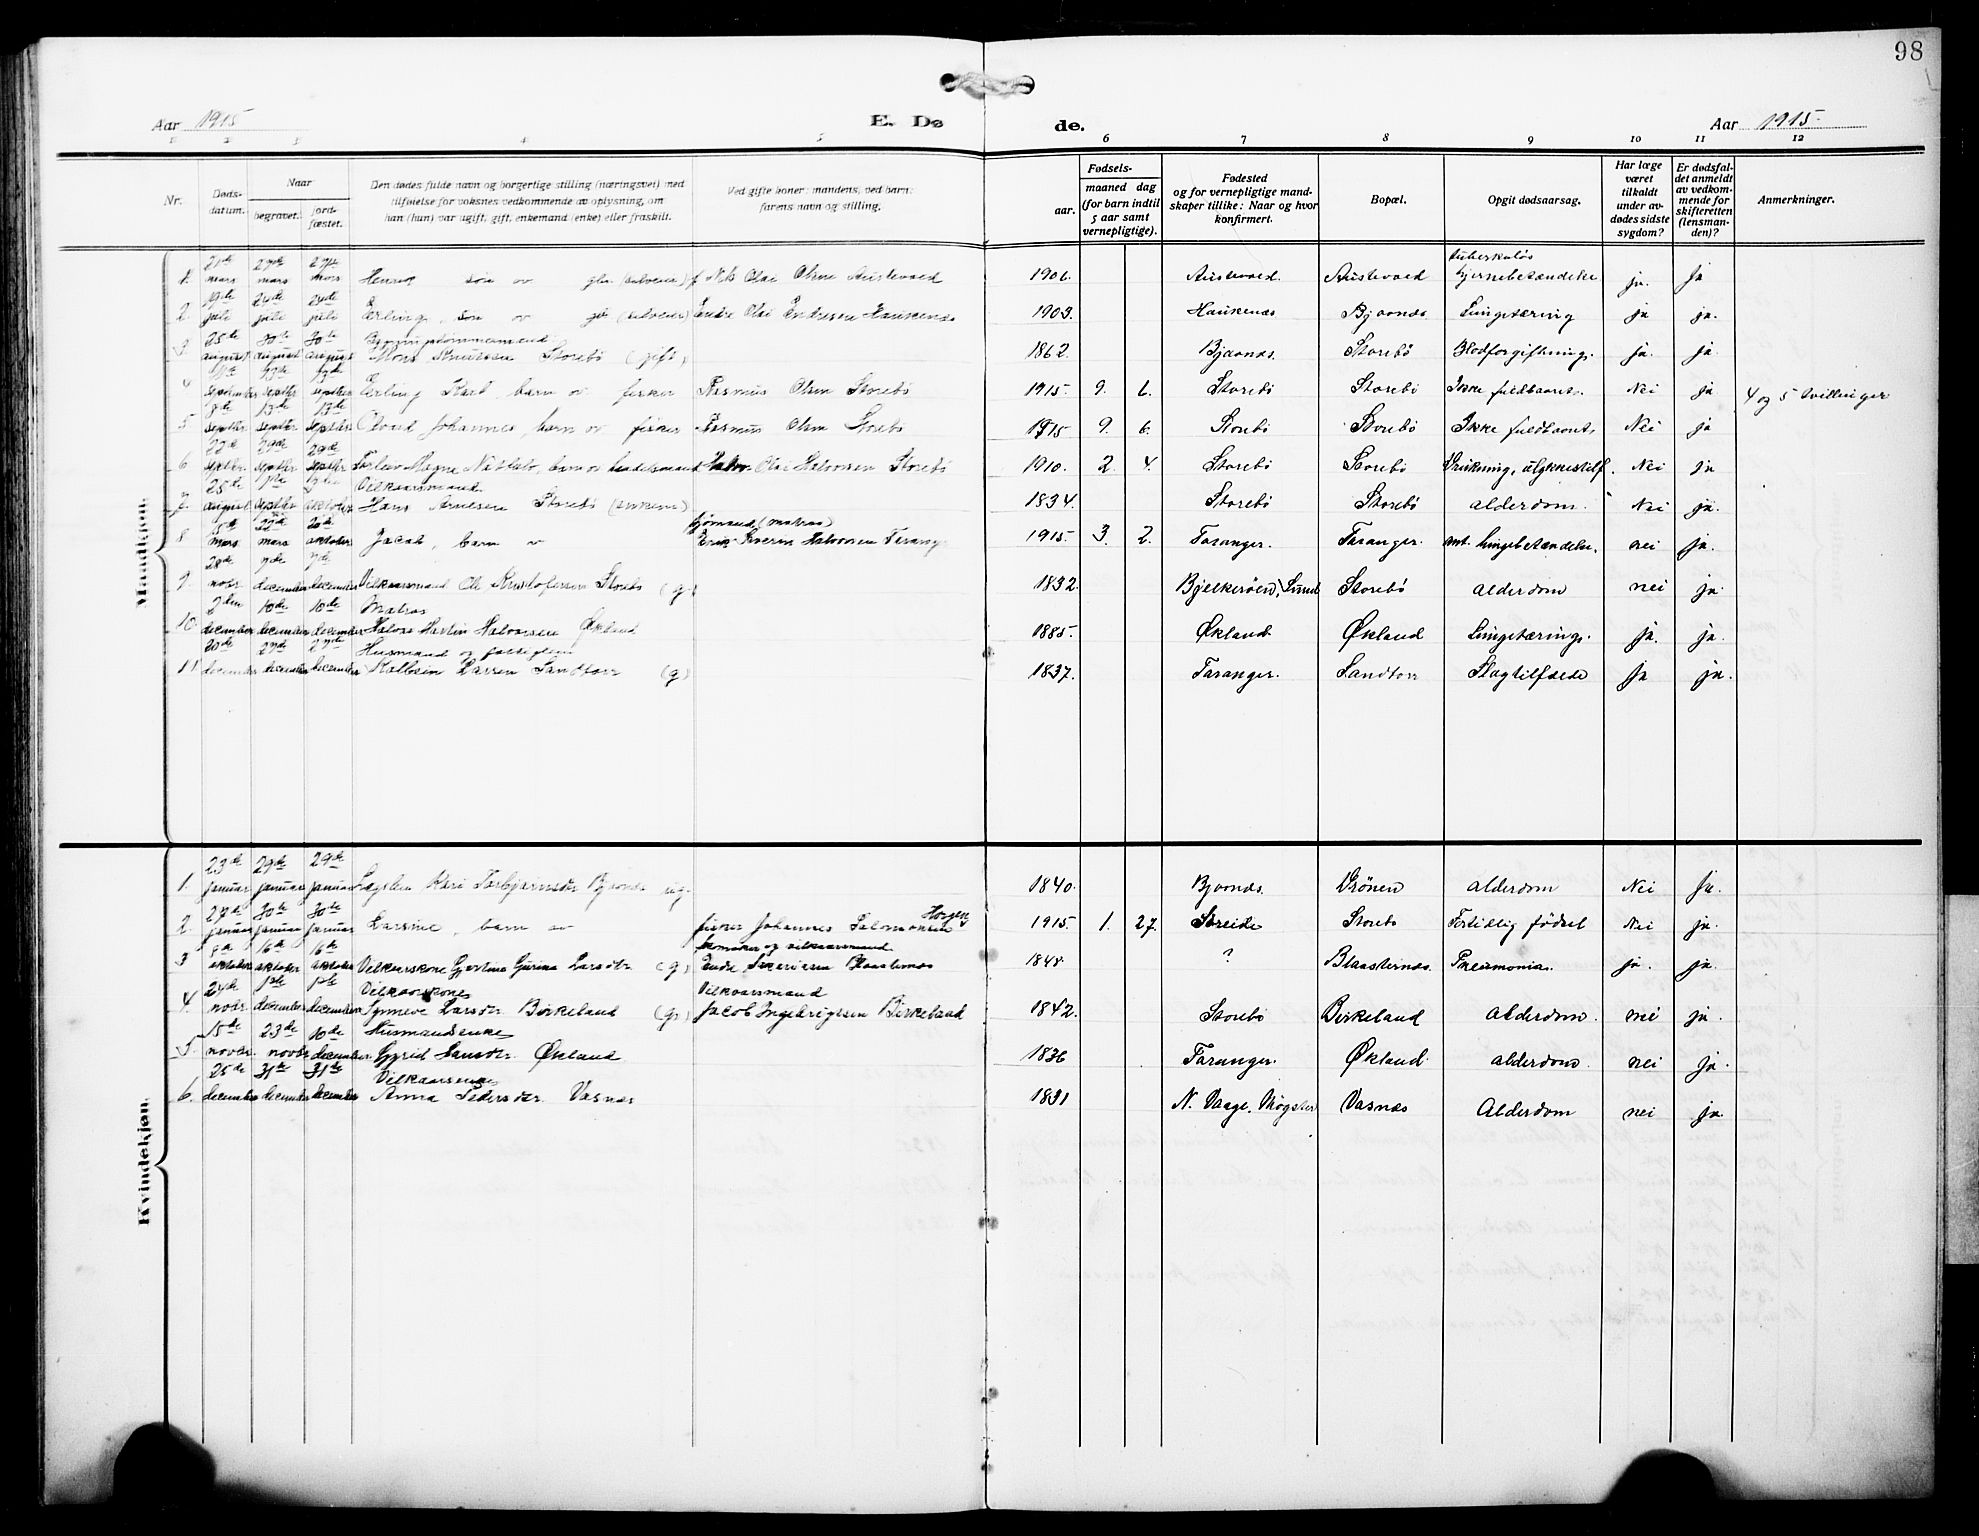 98
Aar 1915
E. Dø
de.
Aar 1915.
6 7 8 9 10 11 12
Nr.
Døds-
datum.
Naar
begravet.
jord-
fæstet.
Den dødes fulde navn og borgerlige stilling (næringsvei) med
tilføielse for voksnes vedkommende av oplysning, om
han (hun) var ugift, gift, enkemand (enke) eller fraskilt.
Ved gifte koner: mandens, ved barn:
farens navn og stilling.
Fødsels-
aar.
maaned dag
(for barn indtil
5 aar samt
vernepligtige).
Fødested
og for vernepligtige mand-
skaper tillike: Naar og hvor
konfirmert.
Bopæl.
Opgit dødsaarsag.
Har læge
været
tilkaldt
under av-
dødes sidste
sygdom?
Er dødsfal-
det anmeldt
av vedkom-
mende for
skifteretten
(lensman-
den)?
Anmerkninger.
Mandkjøn.
21de 27de 27de tuberkuløs
1. mars mars mars søn av Olai Olsen Austevold 1906. Austevold. Austevold hjernebetændelse ja. ja
19de 24de 24de
2. juli juli juli Erling, søn av Endre Olai Endresen Haukenæs 1903. Haukenæs Bjaanæs Lungetæring ja ja.
25de 30te 30te
3. august august august Mons Knutsen Storebø (gift) 1862. Bjaanæs. Storebø Blodforgiftning. ja. ja
4 september septbr septbr Erling Karl, barn av fisker Rasmus Olsen Storebø 1915. 9. 6. Storebø Storebø Ikke fuldbaaret. Nei ja 4 og 5 tvillinger
13de 13de
5 septbr septbr septbr Johannes, barn av fisker Rasmus Olsen Storebø 1915 9. 6. Storebø Storebø Ikke fuldbaaret. Nei ja
22de 29de 29de
6 septbr septbr septbr Magne barn av handelsmand Olai Halvorsen Storebø 1910. 2. 4. Storebø Storebø Drukning, ulykkestilf. Nei ja
25de Vilkaarsmand
7. august septbr oktober Hans Arnesen Storebø (enkem) 1834. Storebø Storebø alderdom. Nei ja.
5te 22de (matros)
8 mars mars oktober Jacob, barn av Erik Severin Halvorsen Taranger 1915. 3. 2. Taranger. Taranger. ant. lungebetændelse. nei ja.
28de 7de 7de
9. novbr. december december Vilkaarsmand Ole Kristofersen Storebø (g) 1832. Bjelkerøen, Sund Storebø alderdom nei ja.
10de 10de Matros
10. december december december Martin Halvorsen Økland 1885. Økland Økland Lungetæring. ja. ja.
20de 27de 27de Husmand og
11 december december december Larsen Sandtorv (g) 1837. Taranger. Sandtorv Slagtilfælde ja ja.
Kvindekjøn.
23de 29de 29de
1. januar januar januar Kari Torbjørnsdtr Bjaanæs ug. 1840. Bjaanæs. Drönen alderdom Nei ja.
27de 30te 30te
2. januar januar januar Larsine, barn av fisker Johannes Salmonsen 1915. 1. 27. Storebø Fortidlig fødsel Nei ja.
9de 16de 16de skomaker og vilkaarsmand
3 oktober oktober oktober Vilkaarskone Gjertina Gurina Larsdtr. (g) Endre 1848. ? Pneumonia. ja. ja.
24de 1ste 1ste Vilkaarskone Vilkaarsmand
4. novbr. december december Synneve Larsdtr Birkeland (g) Jacob Ingebrigtsen Birkeland 1842. Storebø Birkeland Alderdom. nei ja.
15de 23de 10de Husmandsenke
5. novbr. novbr december Gyrid Økland 1836 Taranger. Økland. alderdom. nei ja.
25de 31te 31te
6. december december december Anna Pedersdtr. Vasnæs 1831 N. Vaage. Møgster Vasnæs Alderdom nei ja.